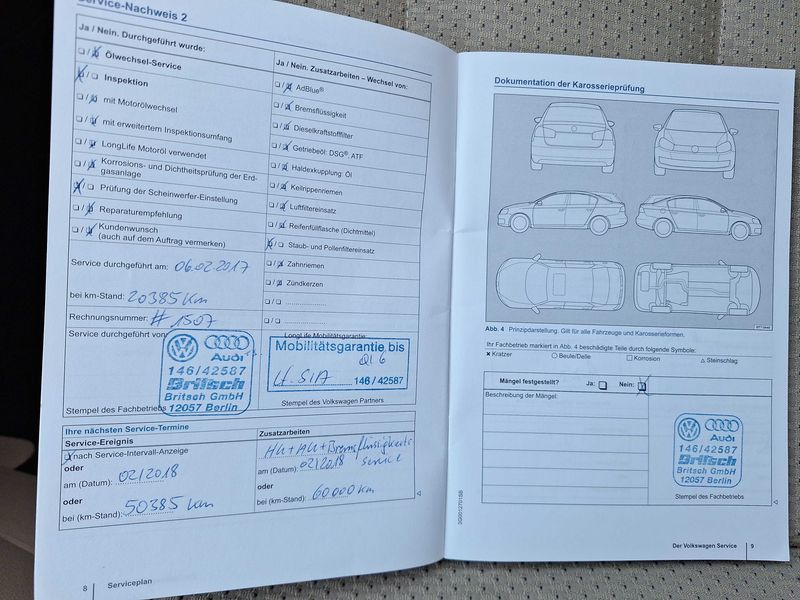 Service-Nachweis 2
Ja / Nein. Durchgeführt wurde:
Ölwechsel-Service
Inspektion
mit Motorölwechsel
mit erweitertem Inspektionsumfang
LongLife Motoröl verwendet
Korrosions- und Dichtheitsprüfung der Erd-
gasanlage
Prüfung der Scheinwerfer-Einstellung
Reparaturempfehlung
Kundenwunsch
(auch auf dem Auftrag vermerken)
Ja / Nein. Zusatzarbeiten – Wechsel von:
AdBlue®
Bremsflüssigkeit
Dieselkraftstofffilter
Getriebeöl: DSG®, ATF
Haldexkupplung: Öl
Keilrippenriemen
Luftfiltereinsatz
Reifenfüllflasche (Dichtmittel)
Staub- und Pollenfiltereinsatz
Zahnriemen
Zündkerzen
Service durchgeführt am: 06.02.2017
bei km-Stand: 20385 km
Rechnungsnummer: # 1507
Service durchgeführt von
Audi
146/42587
Britsch
Britsch GmbH
12057 Berlin
Stempel des Fachbetriebs
LongLife Mobilitätsgarantie
Mobilitätsgarantie bis
146/42587
Stempel des Volkswagen Partners
Ihre nächsten Service-Termine
Service-Ereignis
x nach Service-Intervall-Anzeige
oder
am (Datum): 02/2018
oder
bei (km-Stand): 50385 km
Zusatzarbeiten
AU+AU+Bremsflüssigkeits
service
am (Datum): 02/2018
oder
bei (km-Stand): 60000 km
8 Serviceplan
Dokumentation der Karosserieprüfung
Abb. 4 Prinzipdarstellung. Gilt für alle Fahrzeuge und Karosserieformen.
Ihr Fachbetrieb markiert in Abb. 4 beschädigte Teile durch folgende Symbole:
× Kratzer ○ Beule/Delle □ Korrosion △ Steinschlag
Mängel festgestellt? Ja: Nein:
Beschreibung der Mängel:
Audi
146/42587
Britsch
Britsch GmbH
12057 Berlin
Stempel des Fachbetriebs
Der Volkswagen Service 9